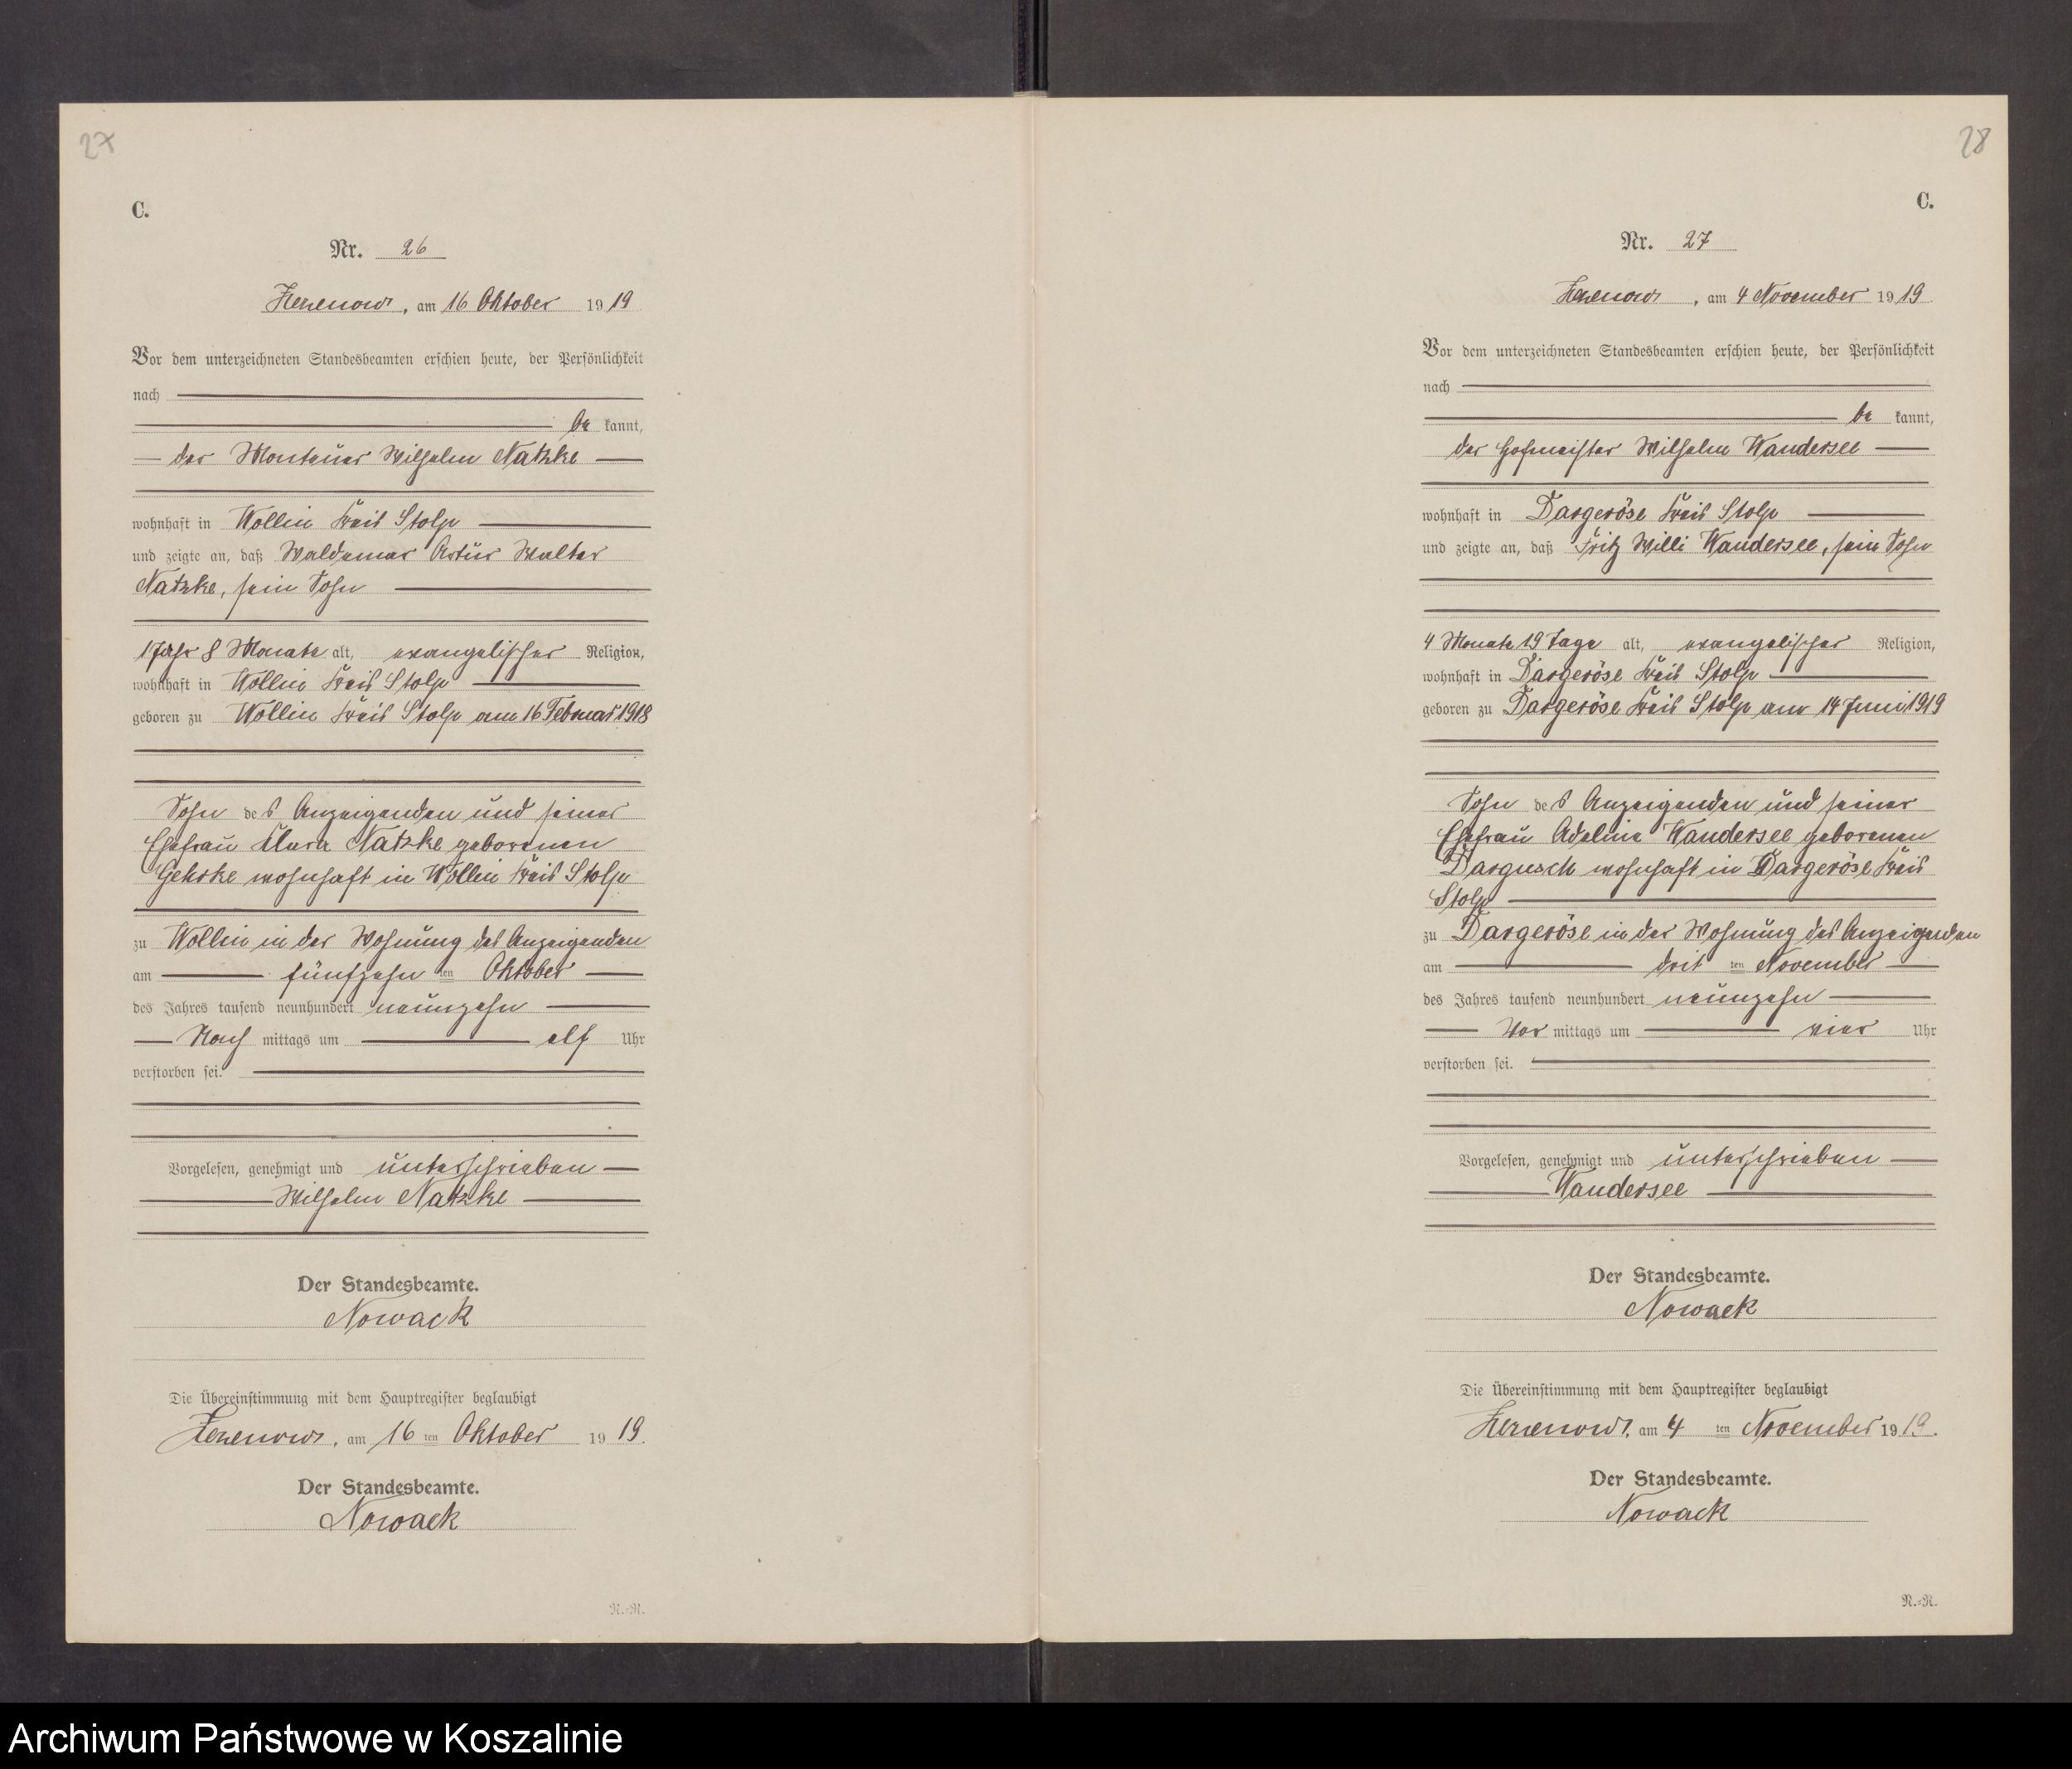 27
C.
Nr. 26
Zezenow, am 16 Oktober 1919
Vor dem unterzeichneten Standesbeamten erschien heute, der Persönlichkeit
nach
be kannt,
der Monteur Wilhelm Natzke
wohnhaft in Wollin Kreis Stolp
und zeigte an, daß Waldemar Artur Walter
Natzke, sein Sohn
1 Jahr 8 Monate alt, evangelischer Religion,
wohnhaft in Wollin Kreis Stolp
geboren zu Wollin Kreis Stolp am 16 Februar 1918
Sohn des Anzeigenden und seiner
Ehefrau Klara Natzke geborenen
Gehrke wohnhaft in Wollin Kreis Stolp
zu Wollin in der Wohnung des Anzeigenden
am fünfzehn ten Oktober
des Jahres tausend neunhundert neunzehn
Nach mittags um elf Uhr
verstorben sei.
Vorgelesen, genehmigt und unterschrieben
Wilhelm Natzke
Der Standesbeamte.
Nowack
Die Übereinstimmung mit dem Hauptregister beglaubigt
Zezenow, am 16 ten Oktober 1919.
Der Standesbeamte.
Nowack
N.-N.
28
C.
Nr. 27
Zezenow, am 4 November 1919
Vor dem unterzeichneten Standesbeamten erschien heute, der Persönlichkeit
nach
be kannt,
der Hofmeister Wilhelm Wandersee
wohnhaft in Dargeröse Kreis Stolp
und zeigte an, daß Fritz Willi Wandersee, sein Sohn
4 Monate 19 Tage alt, evangelischer Religion,
wohnhaft in Dargeröse Kreis Stolp
geboren zu Dargeröse Kreis Stolp am 14 Juni 1919
Sohn des Anzeigenden und seiner
Ehefrau Adeline Wandersee geborenen
Dargusch wohnhaft in Dargeröse Kreis
Stolp
zu Dargeröse in der Wohnung des Anzeigenden
am drit ten November
des Jahres tausend neunhundert neunzehn
Vor mittags um vier Uhr
verstorben sei.
Vorgelesen, genehmigt und unterschrieben
Wandersee
Der Standesbeamte.
Nowack
Die Übereinstimmung mit dem Hauptregister beglaubigt
Zezenow, am 4 ten November 1919.
Der Standesbeamte.
Nowack
N.-N.
Archiwum Państwowe w Koszalinie